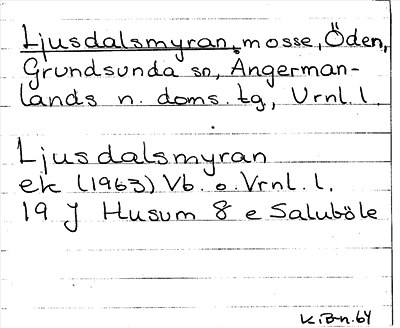 Ljusdalsmyran, mosse, Öden,
Grundsunda sn, Ångerman-
lands n. doms. tg, Vrnl. l.
Ljusdalsmyran
ek (1963) Vb. o. Vrnl. l.
19 J Husum 8 e Saluböle
K.Bn.64